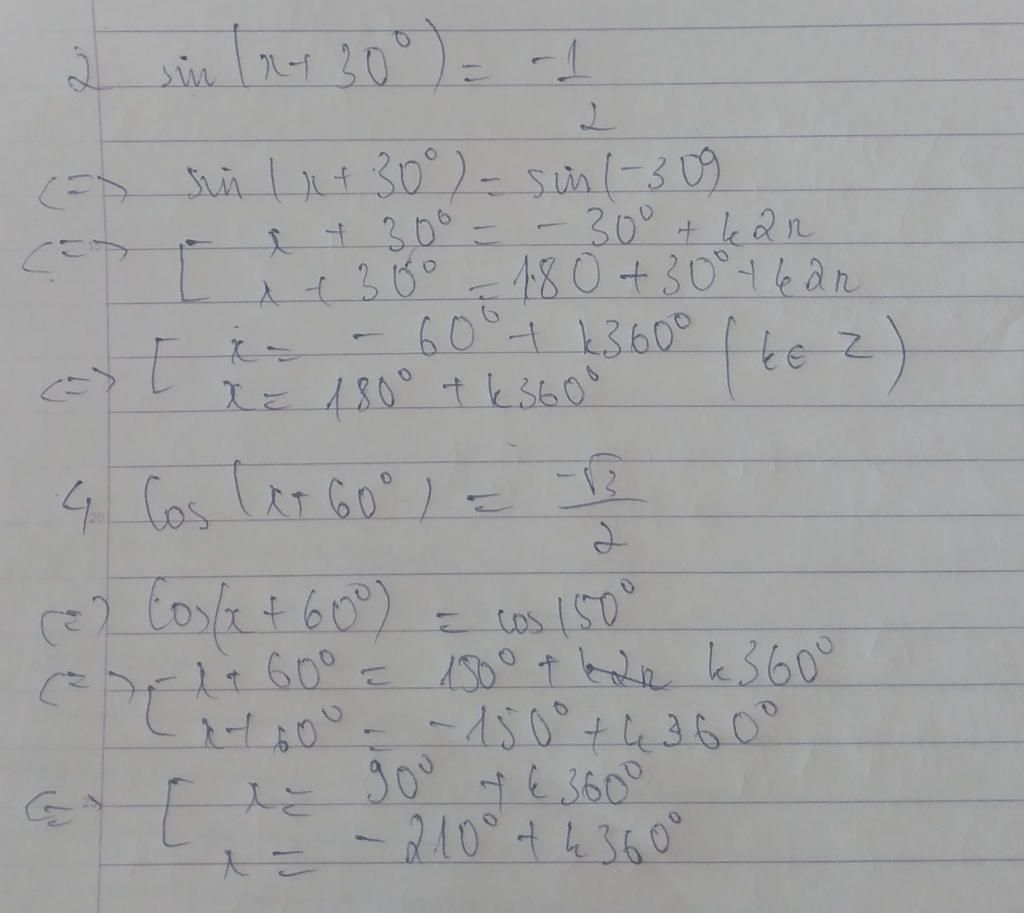 2 sin(x+30°) = -1/2
<=> sin(x+30°) = sin(-30°)
<=> [ x + 30° = -30° + k2π
x + 30° = 180 + 30° + k2π
<=> [ x = -60° + k360° (k ∈ Z)
x = 180° + k360°
4. Cos(x+60°) = -√3/2
<=> Cos(x+60°) = cos150°
<=> [ x+60° = 150° + k2π k360°
x+60° = -150° + k360°
<=> [ x = 90° + k360°
x = -210° + k360°